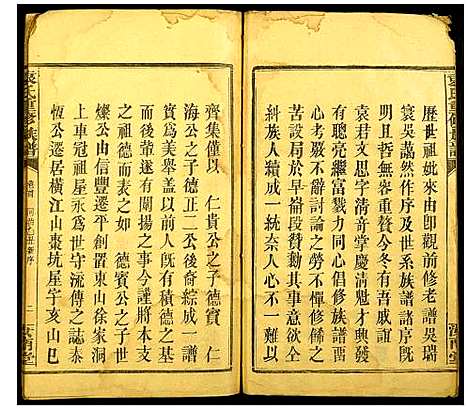 歷世祖妣來由即觀前修老譜吳瑞
寰吳譪然作序及世系族譜諸序旣
明且哲無容重贅今冬有吾戚誼
袁君文思字清音堂慶清魁才興發
有聰亮繼富戮力同心倡修族譜
心考嚴不辭討論之勞不憚修飾之
苦設局於早崙段贊勷其事
本族人續成一統奈人心不一難以
齊集僅以 仁貴公之子德賓 仁
海公之子德正二公後裔綜成一譜
嗚爲美舉蓋以有積德之基
而後葷遂有闡揚之事今謹將本支
之祖德而表之如 德賓公之子世
燦公由信豐遷平創置東山徐家洞
上車冠祖屋永爲世守流傳之誌泰
恆公遷居橫江山棗坑屋亥山巳
袁氏重修族譜
二
汝南堂
袁氏重修族譜
汝南堂